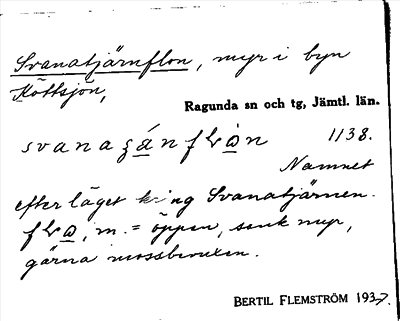 Svanatjärnflon, myr i byn
Köttsjön,
Ragunda sn och tg, Jämtl. län.
svanaʒánflòn 1138.
Namnet
efter läget kring Svanatjärnen.
flo, m. = öppen, sank myr,
gärna mossbevuxen.
BERTIL FLEMSTRÖM 1937.